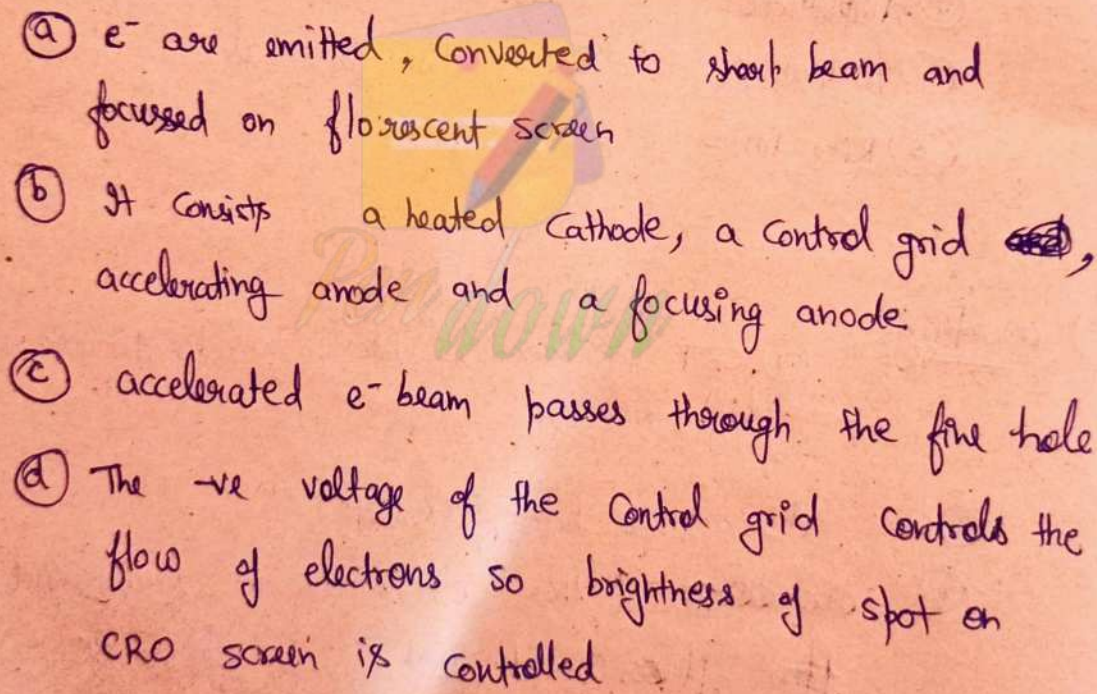 ⓐ e⁻ are emitted, Converted to sharp beam and
focussed on florescent screen
ⓑ It Consists a heated Cathode, a Control grid ,
accelerating anode and a focusing anode
ⓒ accelerated e⁻ beam passes through the fine hole
ⓓ The -ve voltage of the Control grid Controls the
flow of electrons so brightness of spot on
CRO screen is Controlled
Pen down